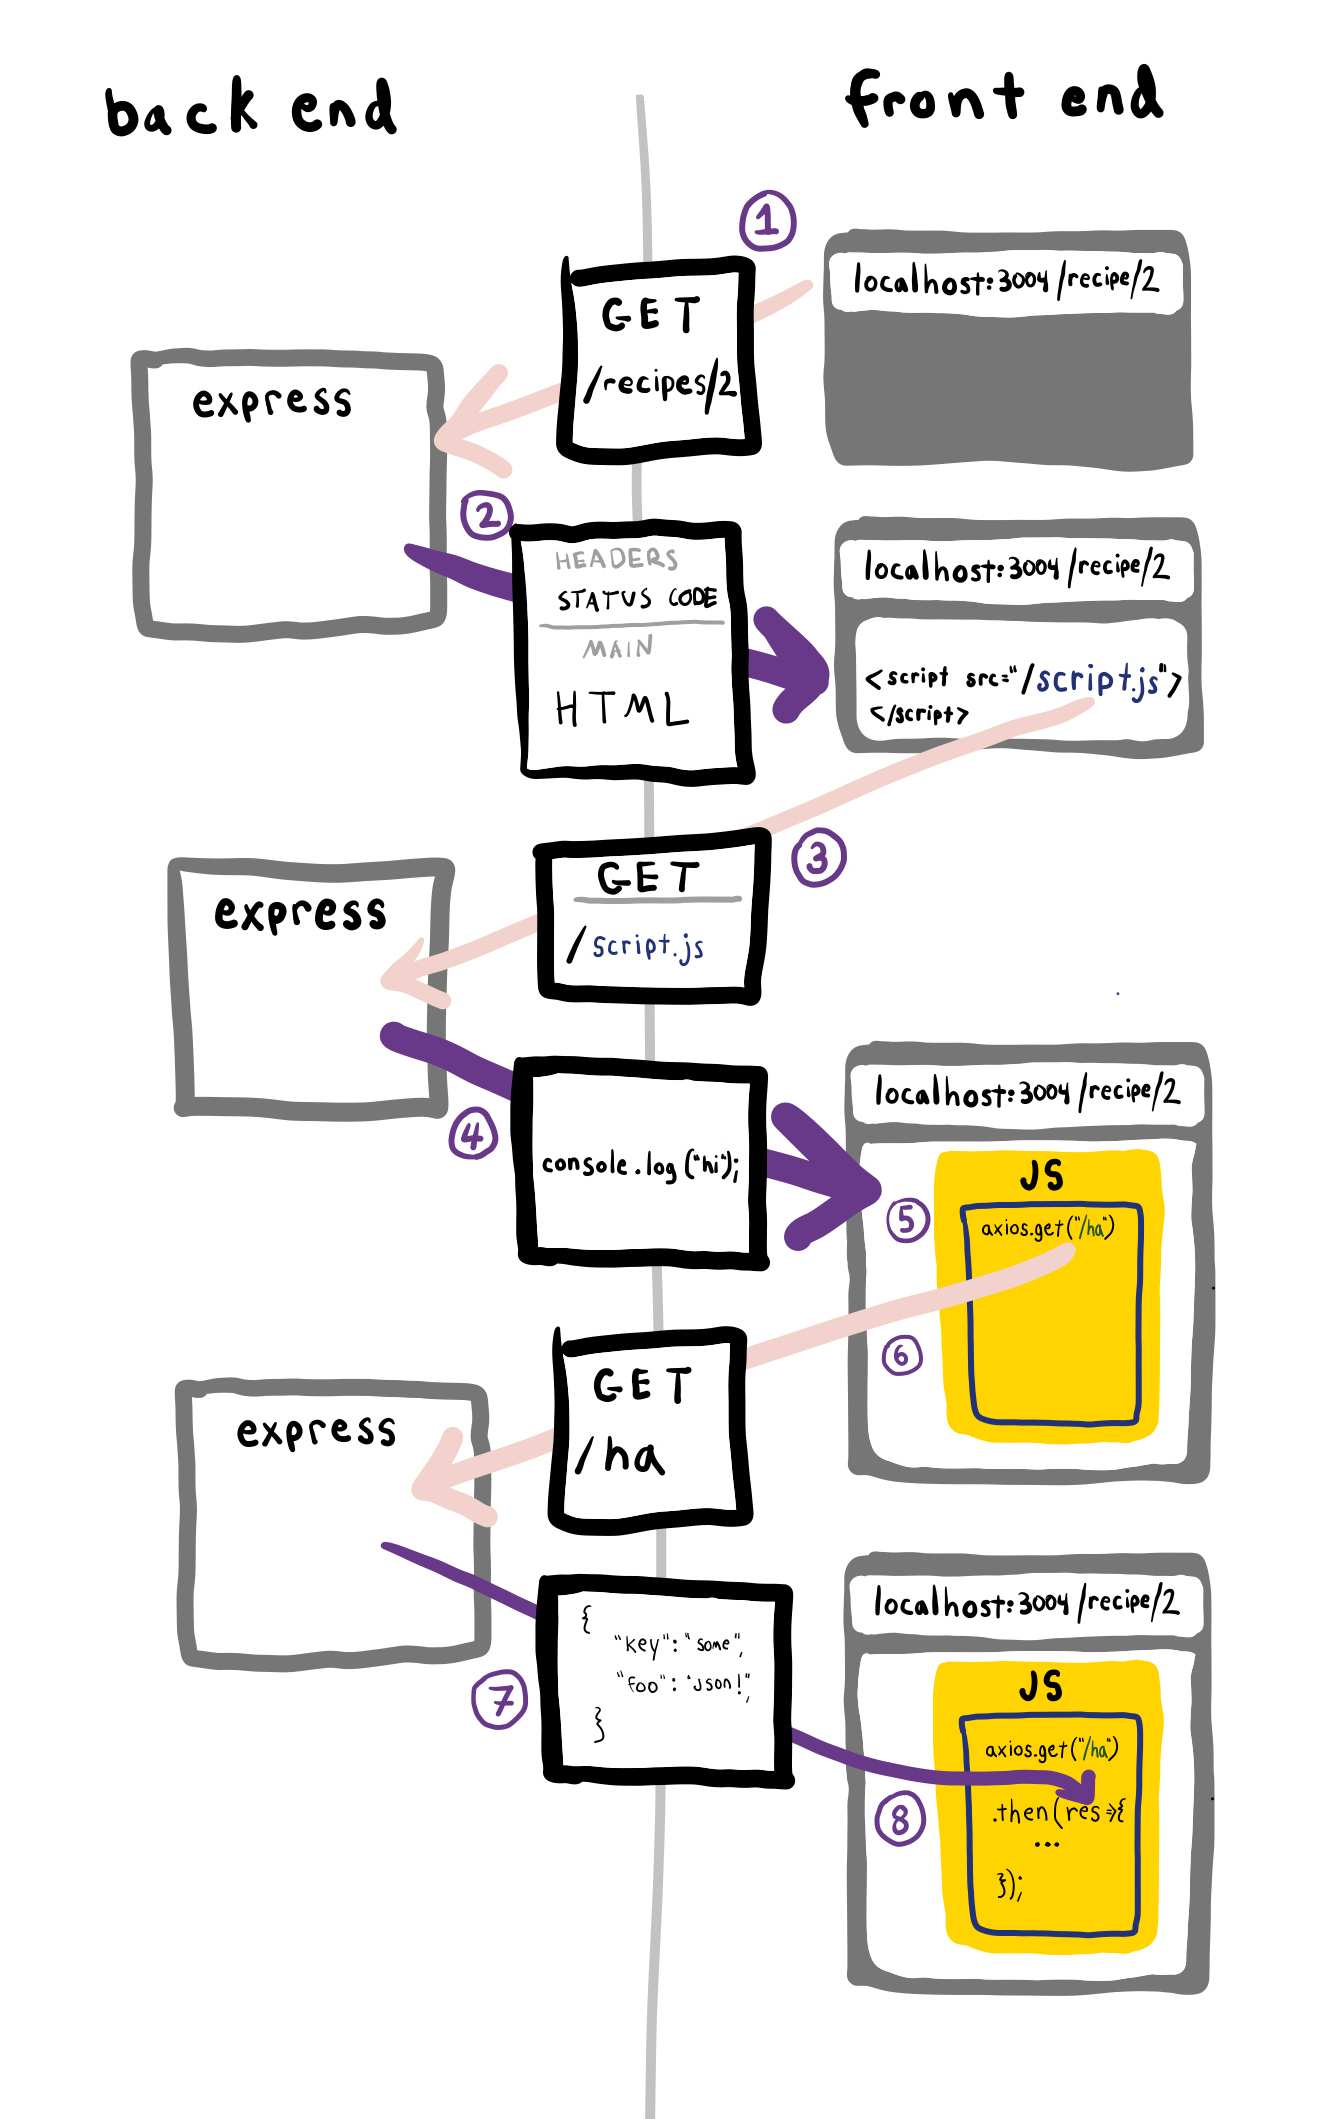 back end
front end
1
localhost:3004/recipe/2
GET
/recipes/2
express
2
HEADERS
STATUS CODE
MAIN
HTML
localhost:3004/recipe/2
<script src="/script.js">
</script>
3
GET
/script.js
express
4
console.log("hi");
localhost:3004/recipe/2
JS
5
axios.get("/ha")
6
GET
/ha
express
7
{
"key": "some",
"foo": "json!",
}
localhost:3004/recipe/2
JS
axios.get("/ha")
8
.then(res=>{
...
});